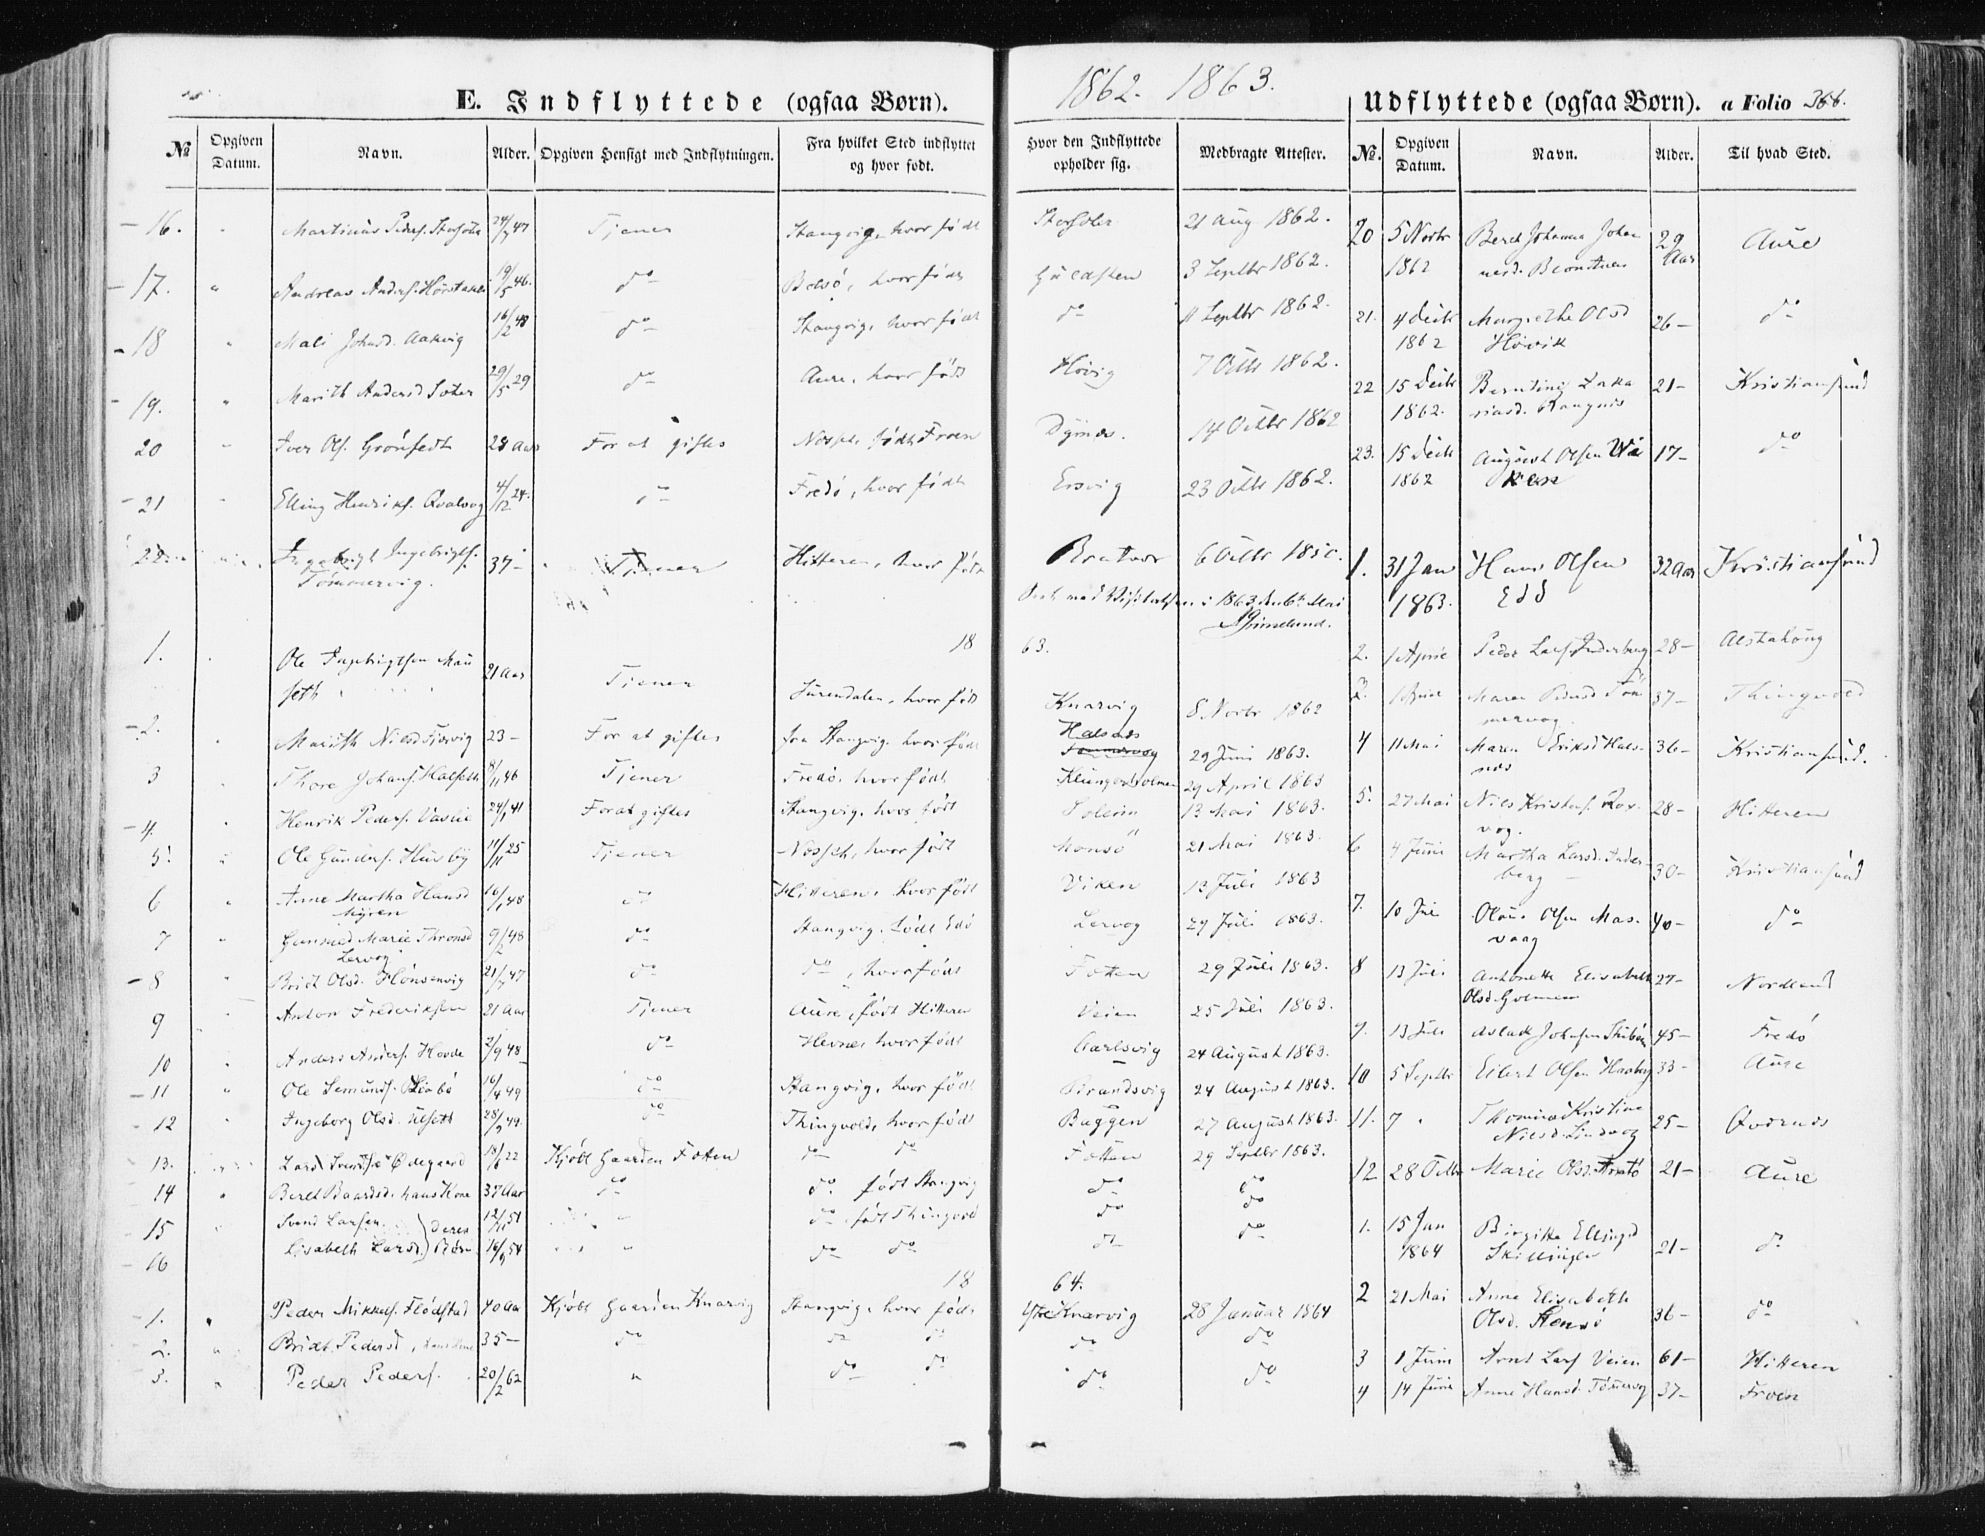 1862. 1863.
E. Indflyttede (ogsaa Børn).
Udflyttede (ogsaa Børn). a Folio 366.
№ Opgiven Datum. Navn. Alder. Opgiven Hensigt med Indflytningen. Fra hvilket Sted indflyttet og hvor født. Hvor den Indflyttede opholder sig. Medbragte Attester.
№. Opgiven Datum. Navn. Alder. Til hvad Sted.
16. Martinus Peders. 24/7 47 Tjener Stangvig, hvor født 21 Aug 1862.
17. Andreas Anders. 19/5 46. do hvor født 3 Septbr 1862.
18 Mali Johnsd. Aakvig 16/2 48 do Stangvig, hvor født do 11 Septbr 1862.
19. Marith Andersd 29/5 29 do Aure, hvor født Hövig 7 Octbr 1862.
20 Iver Ols. Grönseth 28 Aar For at giftes født Froen 14 Octbr 1862
21 Elling Henriks. Qvalvog 4/12 24. do Fredö, hvor født Ersvig 23 Octbr 1862.
22 Ingebrigt Ingebrigts. Tömmervig. 37 - Tjener Hitteren, hvor født Bratvær 6 Octbr 1850.
i 1863 Mai
18 63.
1. Ole Ingebrigtsen Mauseth 21 Aar Tjener Surendalen, hvor født Knarvig 8 Novbr 1862
2. Marith Nilsd 23 - For at giftes fra Stangvig, hvor født Halsnæs 29 Juni 1863.
3 Thore Johans. Halseth 8/11 46 Tjener Fredö, hvor født Klungerholmen 29 April 1863
4. Henrik Peders. Vaslie 24/1 41 For at giftes Stangvig, hvor født 13 Mai 1863.
5. Ole Gunders. Husby 11/11 25 Tjener hvor født Monsö 21 Mai 1863.
6 Anne Martha Hansd Myren 16/1 48 do Hitteren, hvor født Viken 13 Juli 1863
7 Gunnild Marie Thronsd Lervog 9/2 48 do Stangvig, født Edö Lervog 29 Juli 1863.
8 Brit Olsd. Hönsenvig 21/7 47 do do, hvor født Fotten 29 Juli 1863.
9 Anton Frederiksen 21 Aar Tjener Aure, født Hitteren Veien 25 Juli 1863.
10 Anders Anders. Hovde 2/9 48 do Hevne, hvor født Carlsvig 24 August 1863.
11 Ole 16/4 49 do Stangvig, hvor født Strandsvig 24 August 1863.
12 Ingeborg Olsd. Ulseth 28/9 49. do Thingvold, hvor født Buggen 27 August 1863.
13. Lars Svends. Ödegaard 18/6 22 Kjöbt Gaarden Foten do do Fotten 29 Septbr 1863.
14 Beret Baardsd. hans Kone 37 Aar do do. født Stangvig do do
15 Svend Larsen 12/11 51 " do. født Thingvold do do
16 Lisabeth Larsd. deres Börn 16/9 54 " do do do do
18 64.
1. Peder Mikkels. Flödstad 40 Aar Kjöbt Gaarden Knarvig Stangvig, hvor født Ytre Knarvig 28 Januar 1864
2. Bridt Pedersd, hans Kone 35 - do do do do do
3. Peder Peders. 20/2 62 " do do do do
20 5 Novbr 1862 Beret Johanna Johannesd. 29 Aar Aure
21. 4 Decbr 1862 Margrethe Olsd Hövik 26 - do
22 15 Decbr 1862. Berntine Zakariasd. 21 - Kristiansund
23. 15 Decbr 1862 August Olsen Viken 17 - do
1. 31 Jan 1863. Hans Olsen Edö 32 Aar Kristiansund
2. 1 April Peder Lars. Inderberg 28 - Alstahoug
3. 1 Maren Tömmervog. 37 - Thingvold
4 11 Mai Maren Eriksd Halsnæs 36 - Kristiansund.
5. 27 Mai Nils Kristens. 28 - Hitteren
6 4 Juni Martha Larsd. Inderberg 30 - Kristiansund
7. 10 Juli Olsen Masvaag 40 - do
8 13 Juli Antonette Elisabeth Olsd. Holmen 27 - Nordland
9. 13 Juli Aslak Johnsen 45 - Fredö
10 5 Septbr Eilert Olsen 33 - Aure
11. 7 " Kristine Nilsd. Lindvog 25 - Qvernæs
12 28 Octbr Marie Olsd. 21 - Aure
1. 15 Jan 1864 Birgitte Ellingsd Skillingen 21 - do
2 21 Mai Anne Elisabeth Olsd. Stensö 36 - do
3 1 Juni Arnt Lars. Veien 61 - Hitteren
4 14 Juni Anne Hansd. Tömervog 37 - Froen